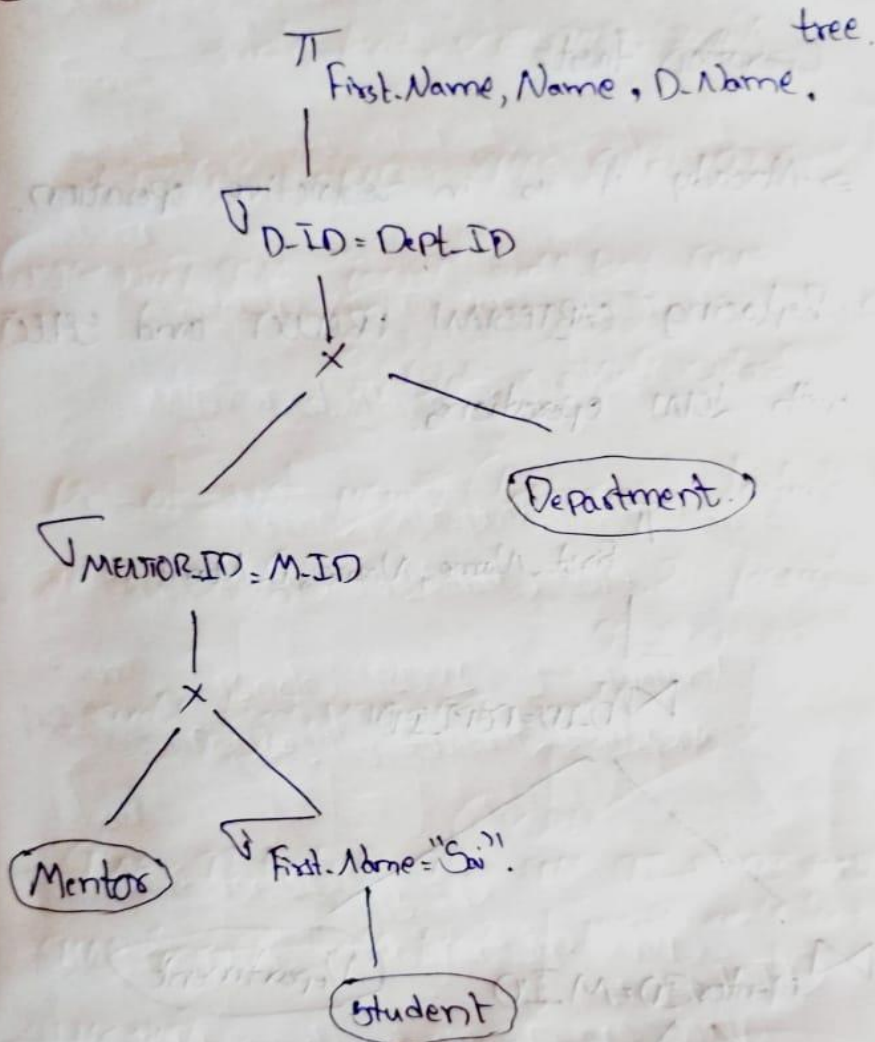 tree.
π First.Name, Name, D.Name.
σ D-ID = Dept_ID
×
Department
σ MENTOR.ID = M-ID
×
Mentor
σ First.Name = "Sai".
Student